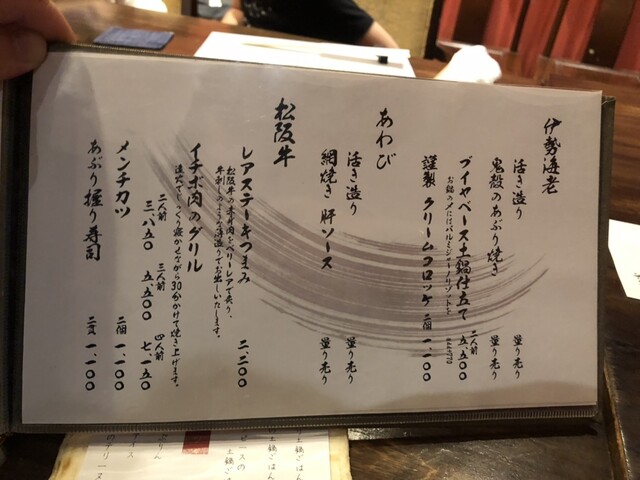 伊勢海老
活き造り 量り売り
鬼殻のあぶり焼き 量り売り
ブイヤベース土鍋仕立て 二人前 五、五〇〇
お鍋の〆にはパルミジャーノリゾットを
謹製 クリームコロッケ 二個 一、一〇〇
あわび
活き造り 量り売り
網焼き 肝ソース 量り売り
松阪牛
レアステーキつまみ 二、二〇〇
松阪牛の赤身肉をベリーレアで炙り、
牛刺しのような薄造りでお出しいたします。
イチボ肉のグリル
遠火でじっくり寝かせながら30分かけて焼き上げます。
二人前 三、八五〇 三人前 五、五〇〇 四人前 七、一五〇
メンチカツ 二個 一、一〇〇
あぶり握り寿司 二貫 一、一〇〇
土鍋ごはん
土鍋ごは
ピースの